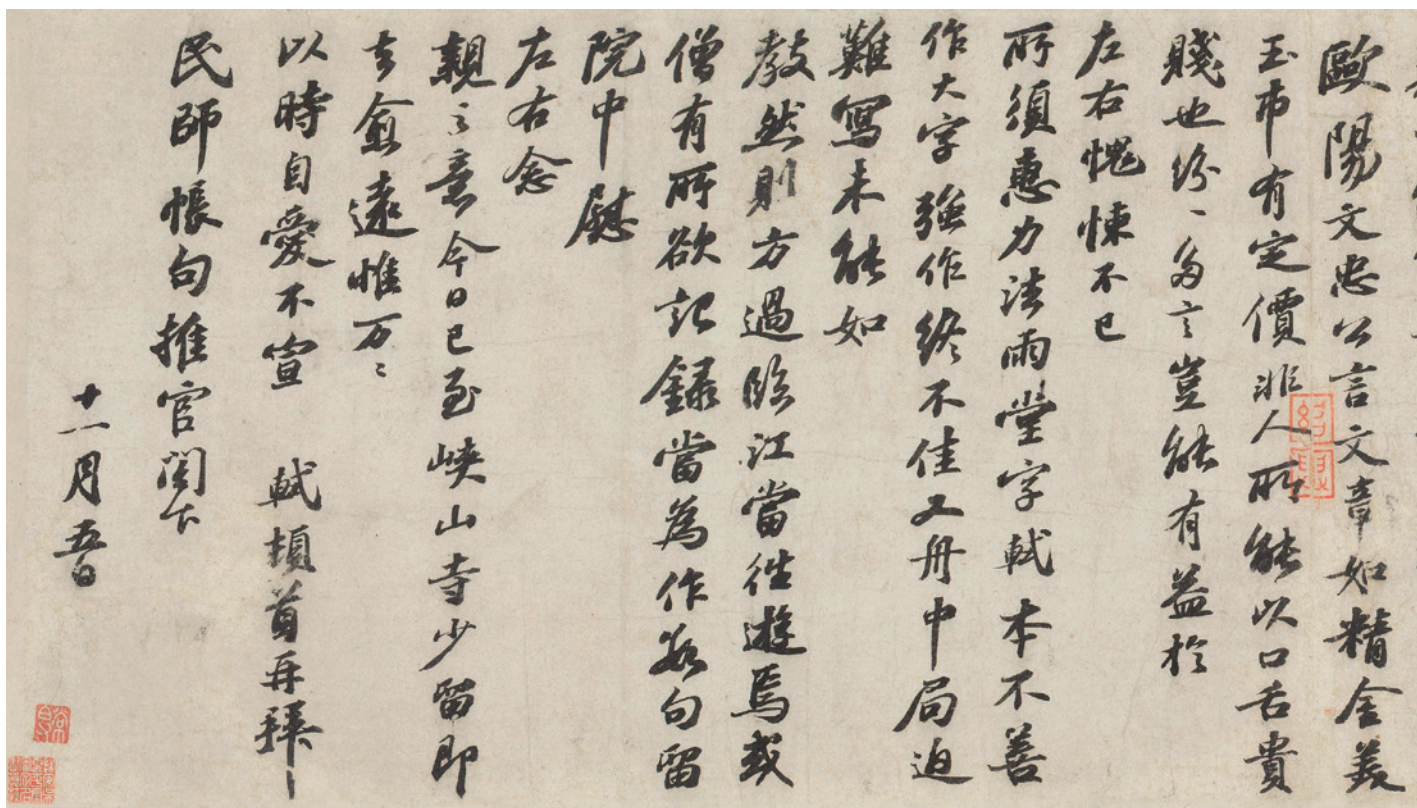 歐陽文忠公言文章如精金美
玉市有定價非人所能以口舌貴
賤也紛〻多言豈能有益於
左右愧悚不已
所須惠力法雨堂字軾本不善
作大字強作終不佳又舟中局迫
難寫未能如
教然則方過臨江當往遊焉或
僧有所欲記錄當為作數句留
院中慰
左右念
親〻意今日已至峽山寺少留即
去愈遠惟万〻
以時自愛不宣 軾頓首再拜
民師帳句推官閣下
十一月五日